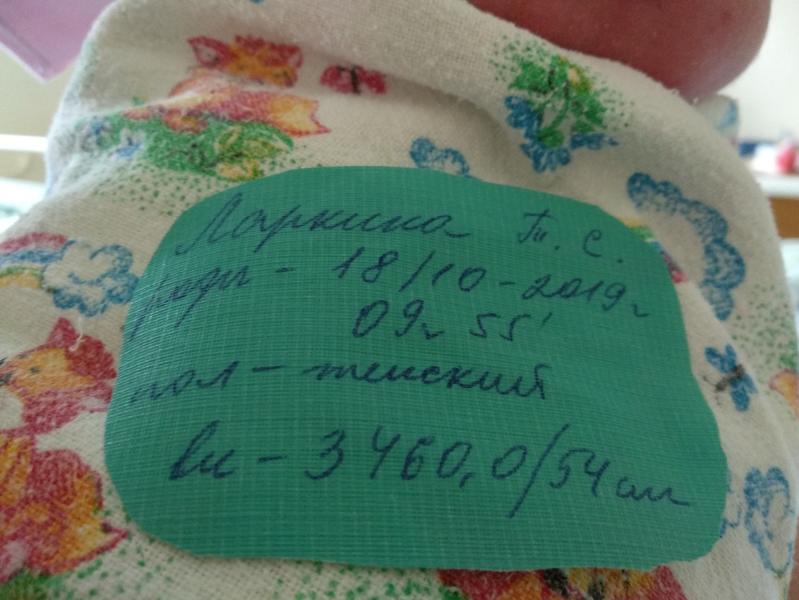 Ларкина Т. С.
роды - 18/10-2019г
09ч 55'
пол - женский
вес - 3460,0/54см